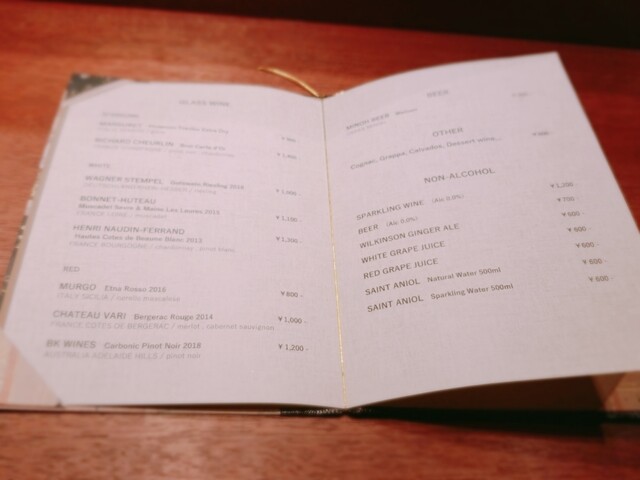 GLASS WINE
SPARKLING
RICHARD CHEURLIN Brut Carte d'Or
WHITE
WAGNER STEMPEL Riesling
BONNET-HUTEAU
Muscadet Sevre & Maine Les Laures 2014
FRANCE LOIRE / muscadet
¥1,100.-
HENRI NAUDIN-FERRAND
Hautes Cotes de Beaune Blanc 2013
FRANCE BOURGOGNE / chardonnay, pinot blanc
¥1,300.-
RED
MURGO Etna Rosso 2016
ITALY SICILIA / nerello mascalese
¥800.-
CHATEAU VARI Bergerac Rouge 2014
FRANCE COTES DE BERGERAC / merlot, cabernet sauvignon
¥1,000.-
BK WINES Carbonic Pinot Noir 2018
AUSTRALIA ADELAIDE HILLS / pinot noir
¥1,200.-
BEER
OTHER
Cognac, Grappa, Calvados, Dessert wine...
NON-ALCOHOL
SPARKLING WINE (Alc 0.0%) ¥1,200.-
BEER (Alc 0.0%) ¥700.-
WILKINSON GINGER ALE ¥600.-
WHITE GRAPE JUICE ¥600.-
RED GRAPE JUICE ¥600.-
SAINT ANIOL Natural Water 500ml ¥600.-
SAINT ANIOL Sparkling Water 500ml ¥600.-